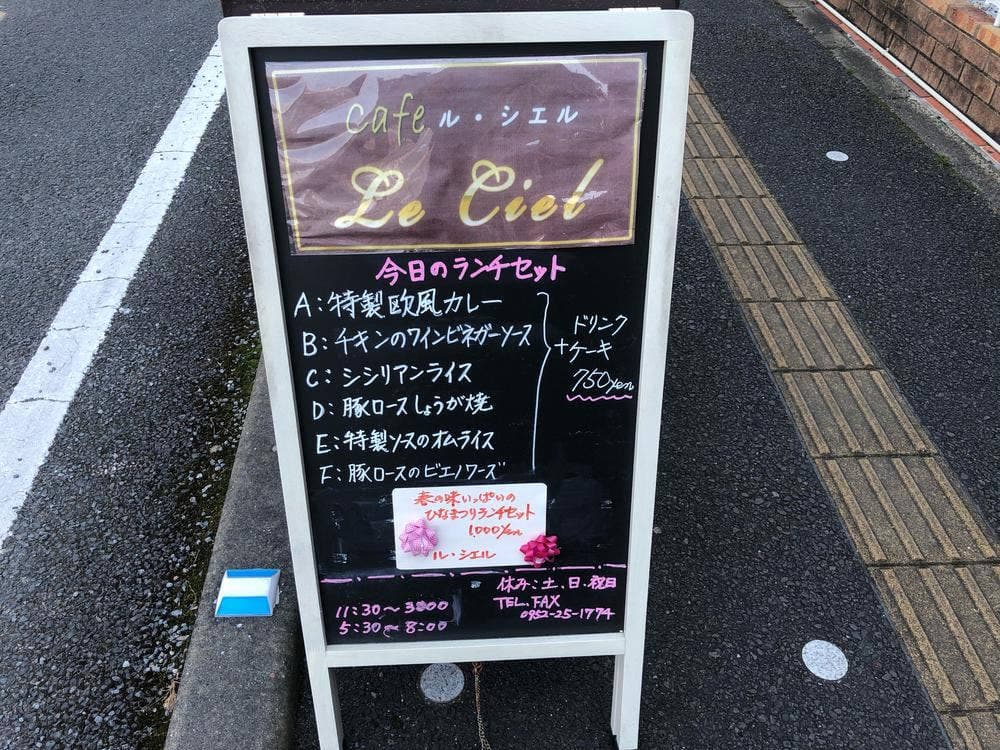 cafe ル・シエル
Le Ciel
今日のランチセット
A:特製欧風カレー
B:チキンのワインビネガーソース
C:シシリアンライス
D:豚ロースしょうが焼
E:特製ソースのオムライス
F:豚ロースのビエノワーズ
ドリンク
+ケーキ
750yen
春の味いっぱいの
ひなまつりランチセット
1,000yen
ル・シエル
11:30〜3:00
5:30〜8:00
休み:土.日.祝日
TEL.FAX
0952-25-1774